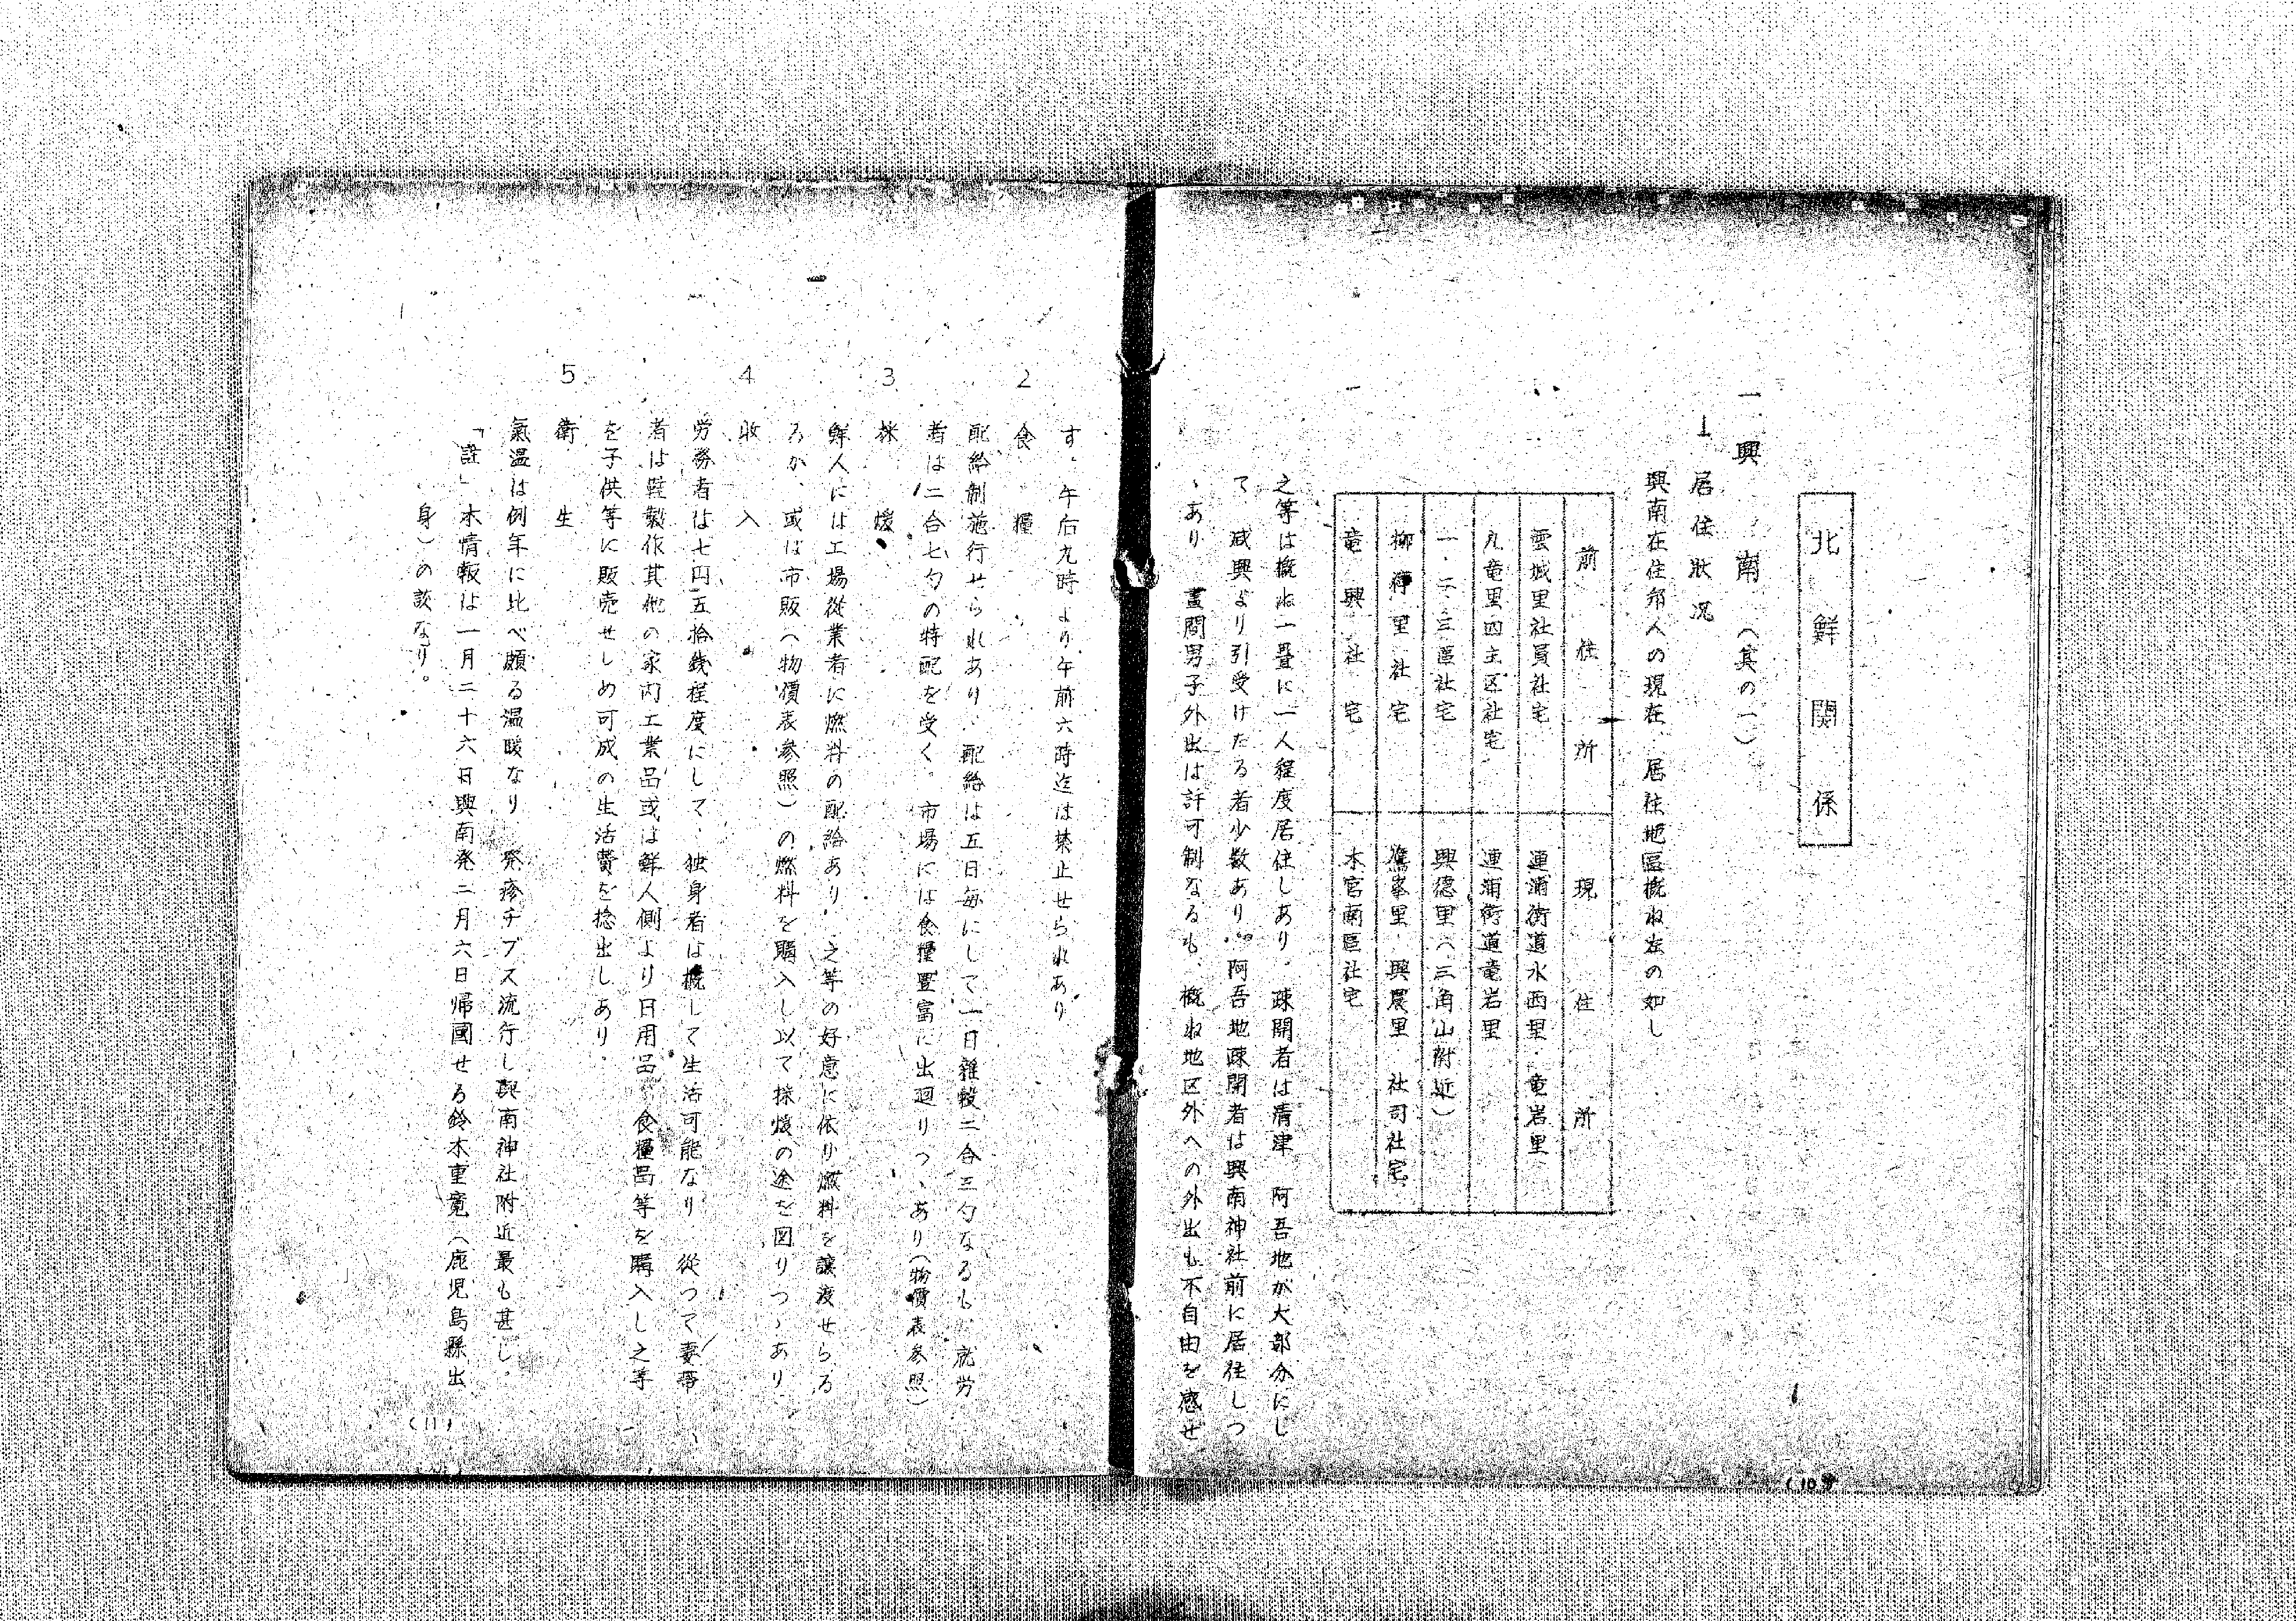 北鮮関係
一 興南 (其の一)
1 居住狀況
興南在住邦人の現在、居住地區概ね左の如し
前住所 現住所
雲城里社員社宅 連浦街道水西里・竜岩里
九竜里四主区社宅 連浦街道竜岩里
一・二・三區社宅 興德里(三角山附近)
柳亭里社宅 鷹峯里・興農里 社司社宅
竜興社宅 本宮南區社宅
之等は概ね一畳に一人程度居住しあり。疎開者は清津 阿吾地が大部分にし
て 咸興より引受けたる者少数あり。阿吾地疎開者は興南神社前に居住しつ
ヽあり 晝間男子外出は許可制なるも、概ね地区外への外出も不自由を感ぜ
(10)
す。午后九時より午前六時迄は禁止せられあり
2 食糧
配給制施行せられあり、配給は五日毎にして一日雜穀二合三勺なるも、就労
者は二合七勺の特配を受く。市場には食糧豊富に出廻りつヽあり(物價表参照)
3 採煖
鮮人には工場從業者に燃料の配給あり、之等の好意に依り燃料を讓渡せらる
るか、或は市販(物價表参照)の燃料を購入し以て採煖の途を図りつヽあり
4 收入
労務者は七円五拾銭程度にして、独身者は概して生活可能なり 從つて妻帯
者は鞋製作其他の家内工業品或は鮮人側より日用品 食糧品等を購入し之等
を子供等に販売せしめ可成の生活費を捻出しあり。
5 衛生
氣温は例年に比べ頗る温暖なり 発疹チブス流行し興南神社附近最も甚し。
「註」本情報は一月二十六日興南発二月六日帰國せる鈴木重寛(鹿児島縣出
身)の談なり。
(11)